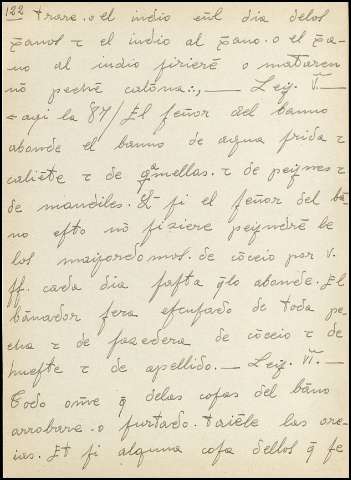 122 trare. o el iudio eñl dia delos
xp̃anos τ el iudio al xp̃ano. o el xp̃a-
no al iudio firierē o mataren
nō peche calōna:., — Ley. V. —
< aqi la 84 / El ſeñor del banno
abonde el banno de agua frida τ
caliēte τ de gamellas. τ de peignes τ
de mandiles. Et ſi el ſeñor del bā-
no eſto nō fiziere peyndrē le
los mayordomos. de cōceio por v.
ſſ. cada dia faſta q̃lo abonde. El
bānador ſera eſcuſado de toda pe
cha τ de fazedera de cōceio τ de
hueſte τ de apellido. — Ley. VI. —
Todo om̃e q̃ delas coſas del bāno
arrobare. o furtado. taiēle las ore-
ias. Et ſi alguna coſa dellos q̃ ſe